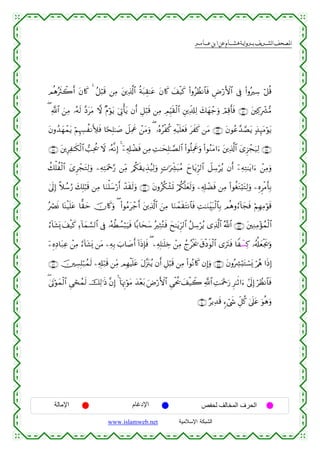 المصحف الشريف برواية هشام عن ابن عامر
قُلْ سِيرُوا۟ فِى ٱلْأَرْضِ فَٱنظُرُوا۟ كَيْفَ كَانَ عَٰقِبَةُ ٱلَّذِينَ مِن قَبْلُ ۚ كَانَ أَكْثَرُهُم
مُّشْرِكِينَ ۝ فَأَقِمْ وَجْهَكَ لِلدِّينِ ٱلْقَيِّمِ مِن قَبْلِ أَن يَأْتِىَ يَوْمٌ لَّا مَرَدَّ لَهُۥ مِنَ ٱللَّهِ ۖ
يَوْمَئِذٍ يَصَّدَّعُونَ ۝ مَن كَفَرَ فَعَلَيْهِ كُفْرُهُۥ ۖ وَمَنْ عَمِلَ صَٰلِحًا فَلِأَنفُسِهِمْ يَمْهَدُونَ
۝ لِيَجْزِىَ ٱلَّذِينَ ءَامَنُوا۟ وَعَمِلُوا۟ ٱلصَّٰلِحَٰتِ مِن فَضْلِهِۦٓ ۚ إِنَّهُۥ لَا يُحِبُّ ٱلْكَٰفِرِينَ ۝
وَمِنْ ءَايَٰتِهِۦٓ أَن يُرْسِلَ ٱلرِّيَاحَ مُبَشِّرَٰتٍ وَلِيُذِيقَكُم مِّن رَّحْمَتِهِۦ وَلِتَجْرِىَ ٱلْفُلْكُ
بِأَمْرِهِۦ وَلِتَبْتَغُوا۟ مِن فَضْلِهِۦ وَلَعَلَّكُمْ تَشْكُرُونَ ۝ وَلَقَدْ أَرْسَلْنَا مِن قَبْلِكَ رُسُلًا إِلَىٰ
قَوْمِهِمْ فَجَآءُوهُم بِٱلْبَيِّنَٰتِ فَٱنتَقَمْنَا مِنَ ٱلَّذِينَ أَجْرَمُوا۟ ۖ وَكَانَ حَقًّا عَلَيْنَا نَصْرُ
ٱلْمُؤْمِنِينَ ۝ ٱللَّهُ ٱلَّذِى يُرْسِلُ ٱلرِّيَٰحَ فَتُثِيرُ سَحَابًا فَيَبْسُطُهُۥ فِى ٱلسَّمَآءِ كَيْفَ يَشَآءُ
وَيَجْعَلُهُۥ كِسْفًا فَتَرَى ٱلْوَدْقَ يَخْرُجُ مِنْ خِلَٰلِهِۦ ۖ فَإِذَآ أَصَابَ بِهِۦ مَن يَشَآءُ مِنْ عِبَادِهِۦٓ
إِذَا هُمْ يَسْتَبْشِرُونَ ۝ وَإِن كَانُوا۟ مِن قَبْلِ أَن يُنَزَّلَ عَلَيْهِم مِّن قَبْلِهِۦ لَمُبْلِسِينَ ۝
فَٱنظُرْ إِلَىٰٓ ءَاثَٰرِ رَحْمَتِ ٱللَّهِ كَيْفَ يُحْىِ ٱلْأَرْضَ بَعْدَ مَوْتِهَآ ۚ إِنَّ ذَٰلِكَ لَمُحْىِ ٱلْمَوْتَىٰ ۖ
وَهُوَ عَلَىٰ كُلِّ شَىْءٍ قَدِيرٌ ۝
الحرف المخالف لحفص الإدغام الإمالة
www.islamweb.net الشبكة الإسلامية